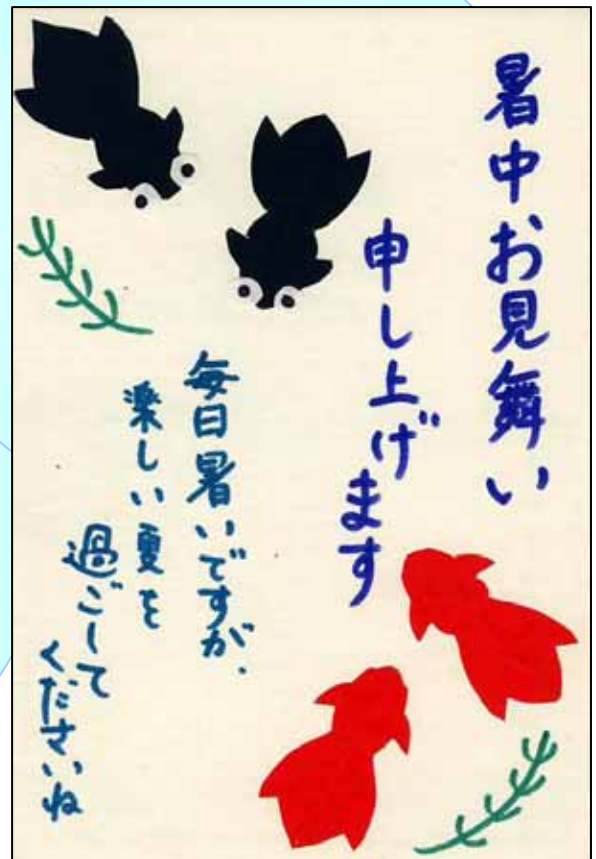 暑中お見舞い
申し上げます
毎日暑いですが、
楽しい夏を
過ごして
くださいね